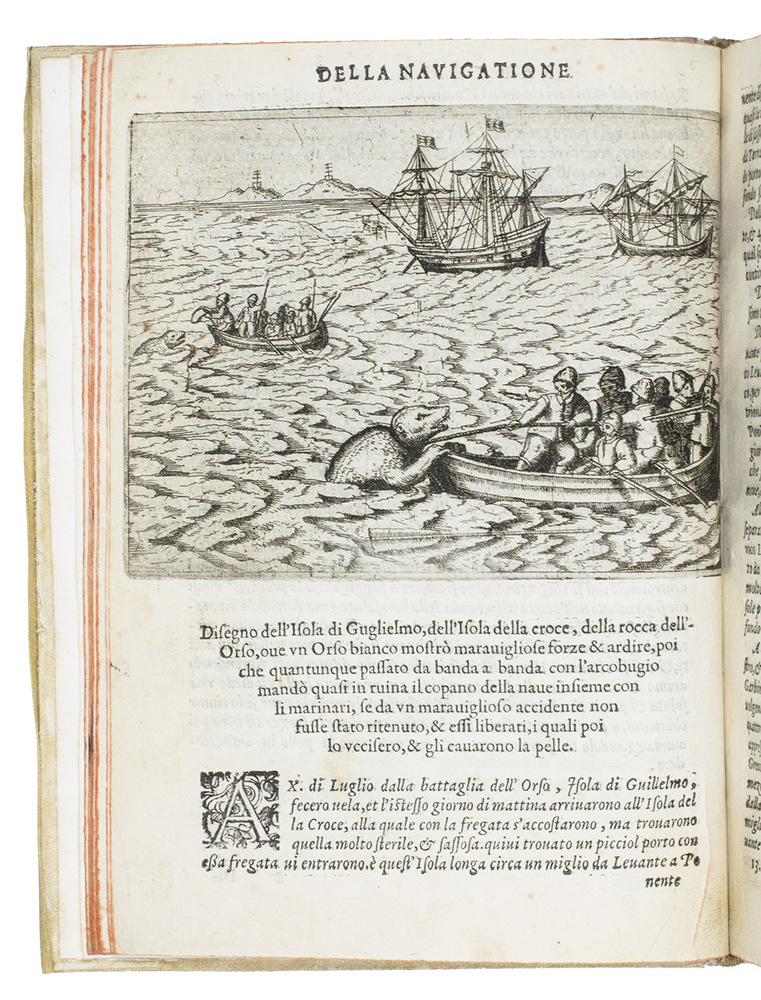 DELLA NAVIGATIONE.
Diſegno dell'Iſola di Guglielmo, dell'Iſola della croce, della rocca dell'-
Orſo, oue vn Orſo bianco moſtrò marauiglioſe forze & ardire, poi
che quantunque paſſato da banda a banda con l'arcobugio
mandò quaſi in ruina il copano della naue inſieme con
li marinari, ſe da vn marauiglioſo accidente non
fuſſe ſtato ritenuto, & eſſi liberati, i quali poi
lo vcciſero, & gli cauarono la pelle.
AX. di Luglio dalla battaglia dell'Orſo, Iſola di Guillelmo,
fecero uela, et l'iſteſſo giorno di mattina arriuarono all'Iſola del
la Croce, alla quale con la fregata s'accoſtarono, ma trouarono
quella molto ſterile, & ſaſſoſa. quiui trouato un picciol porto con
eſſa fregata ui entrarono. è queſt'Iſola longa circa un miglio da Leuante a Po
nente